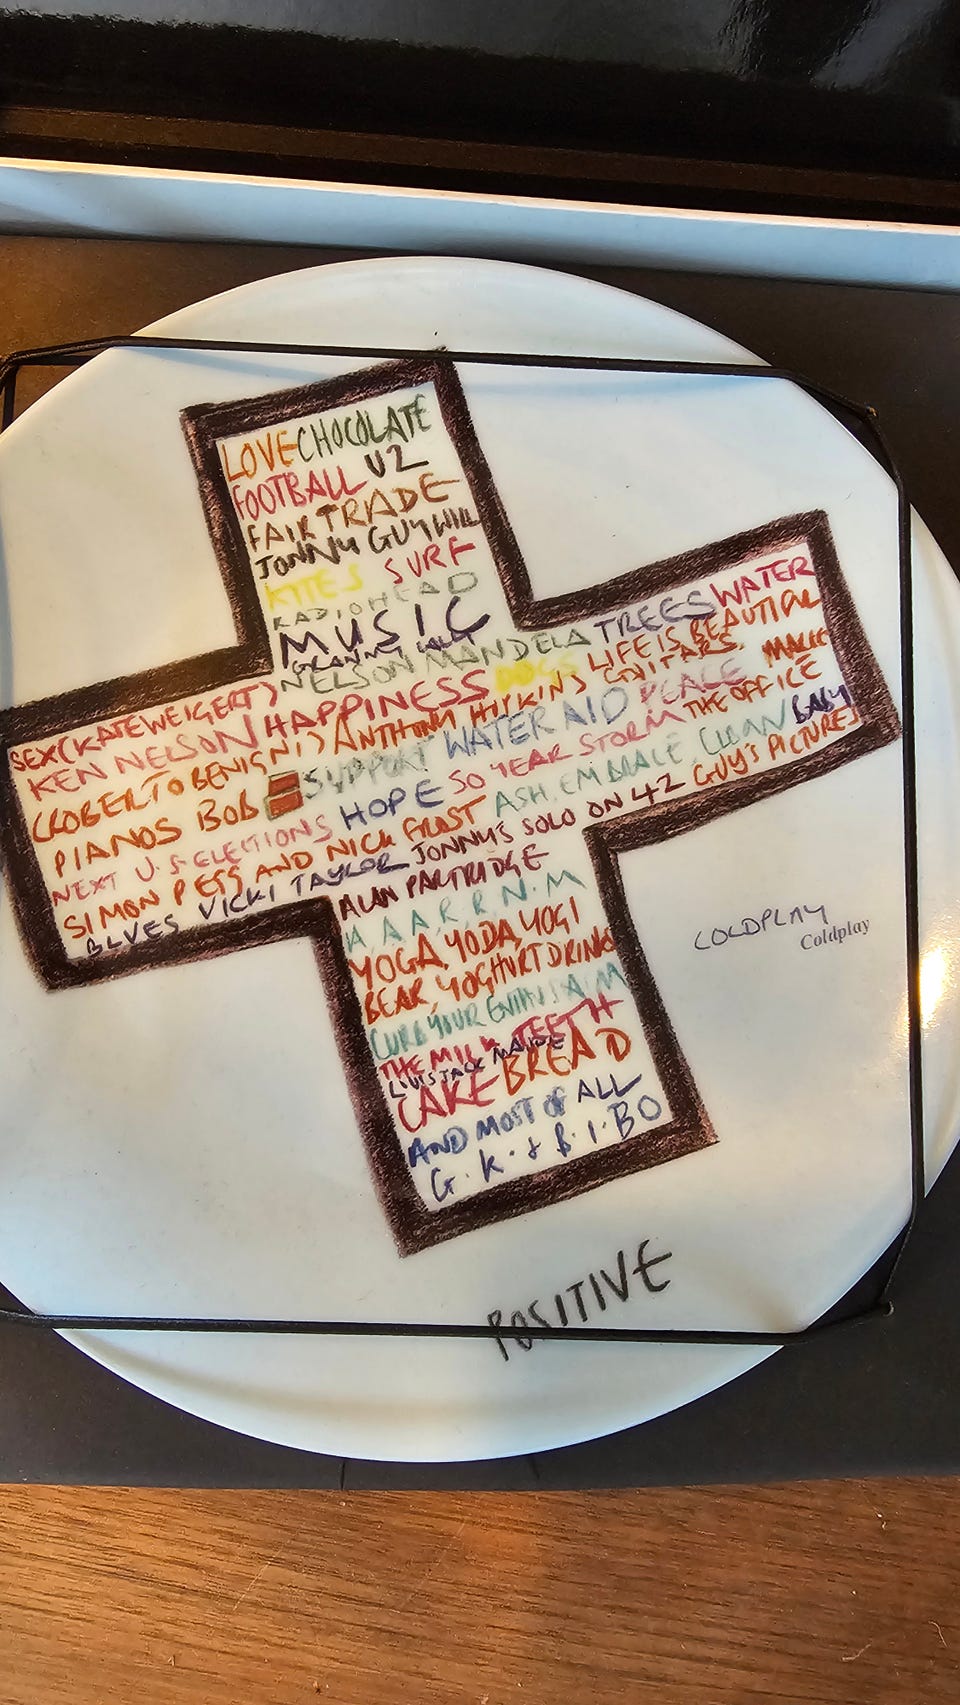 LOVE CHOCOLATE
FOOTBALL U2
FAIRTRADE
JONNY GUY WILL
KITES SURF
RADIOHEAD
MUSIC
NELSON MANDELA TREES WATER
SEX (KATE WEIGERT) HAPPINESS DOGS LIFE IS BEAUTIFUL
KEN NELSON ANTHONY HOPKINS GUITARS.
(ROBERTO BENIGNI) SUPPORT WATER AID PEACE
PIANOS BOB HOPE 50 YEAR STORM THE OFFICE
NEXT U.S ELECTIONS ASH, EMBRACE, CLOWN BABY
SIMON PEGG AND NICK FROST JONNY'S SOLO ON 42 GUY'S PICTURES
BLUES VICKI TAYLOR
ALAN PARTRIDGE
A, A, R, R, N. M
YOGA, YODA, YOGI
BEAR, YOGHURT DRINKS
CURB YOUR ENTHUSIASM
THE MILK TEETH
CAKE BREAD
AND MOST OF ALL
G. K. + B. I. BO
COLDPLAY
Coldplay
POSITIVE